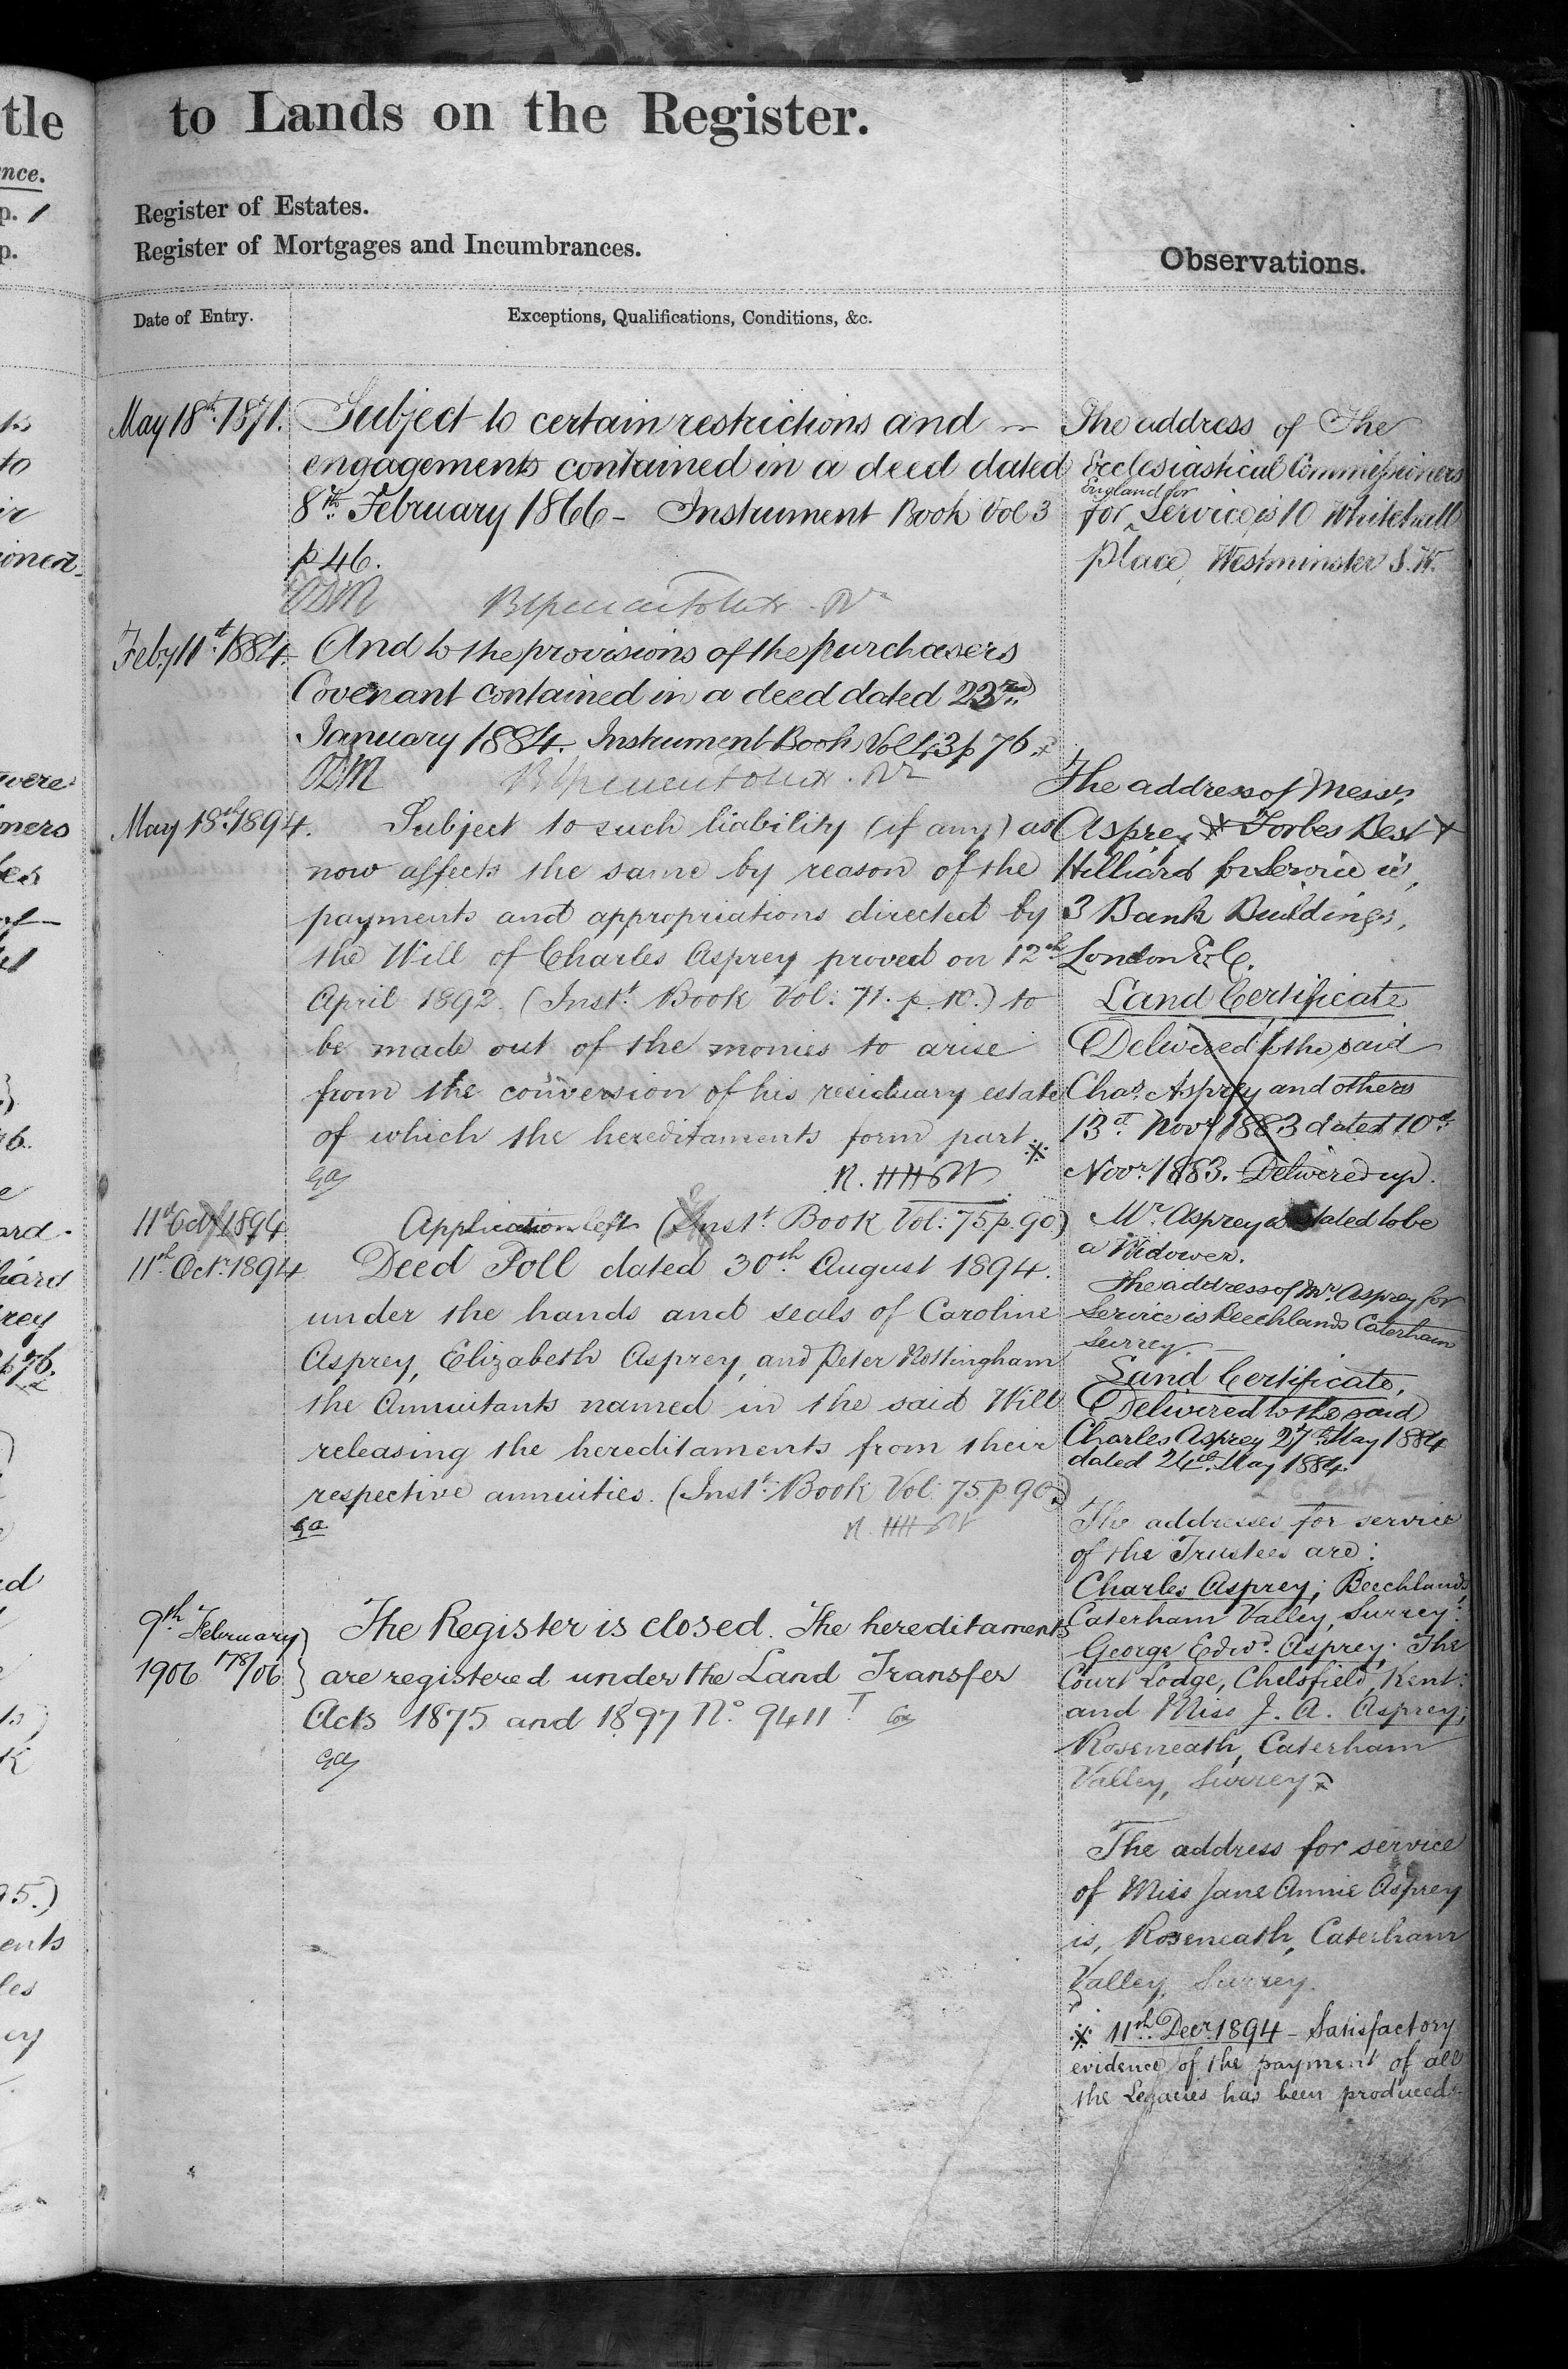 tle
nce.
p. 1
p.
to Lands on the Register.
Register of Estates.
Register of Mortgages and Incumbrances.
Observations.
Date of Entry.
Exceptions, Qualifications, Conditions, &c.
May 18th 1871.
Subject to certain restrictions and
engagements contained in a deed dated
8th February 1866 - Instrument Book Vol 3
p 46.
ODM
Feby 11th 1884.
And to the provisions of the purchasers
Covenant contained in a deed dated 23rd
January 1884. Instrument Book Vol 43 p 76.
ODM
May 18th 1894.
Subject to such liability (if any) as
now affects the same by reason of the
payments and appropriations directed by
the Will of Charles Asprey proved on 12th
April 1892. (Inst. Book Vol: 71. p. 10.) to
be made out of the monies to arise
from the conversion of his residuary estate
of which the hereditaments form part ※
11th Oct 1894
Application left (Inst. Book Vol: 75 p. 90)
11th Octr. 1894
Deed Poll dated 30th August 1894.
under the hands and seals of Caroline
Asprey, Elizabeth Asprey, and Peter Nottingham
the Annuitants named in the said Will
releasing the hereditaments from their
respective annuities. (Inst. Book Vol: 75 p 90.)
9th February
1906 178/06
The Register is closed. The hereditaments
are registered under the Land Transfer
Acts 1875 and 1897 No. 9411
The address of The
Ecclesiastical Commissioners
England for
for Service is 10 Whitehall
Place, Westminster S.W.
The address of Messrs.
Asprey Forbes Best &
Hilliard for Service is,
3 Bank Buildings,
London E.C.
Land Certificate
Delivered to the said
Chas. Asprey and others
13th Novr 1883 dated 10th
Novr. 1883. Delivered up.
Mr. Asprey is stated to be
a Widower.
The address of Mr. Asprey for
Service is Beechlands Caterham
Surrey.
Land Certificate,
Delivered to the said
Charles Asprey 27th May 1884
dated 24th May 1884.
The addresses for service
of the Trustees are:
Charles Asprey; Beechlands
Caterham Valley, Surrey:
George Edwd. Asprey; The
Court Lodge, Chelsfield, Kent:
and Miss J. A. Asprey;
Roseneath, Caterham
Valley, Surrey
The address for service
of Miss Jane Annie Asprey
is, Roseneath, Caterham
Valley, Surrey.
※ 11th Decr. 1894 - Satisfactory
evidence of the payment of all
the Legacies has been produced.